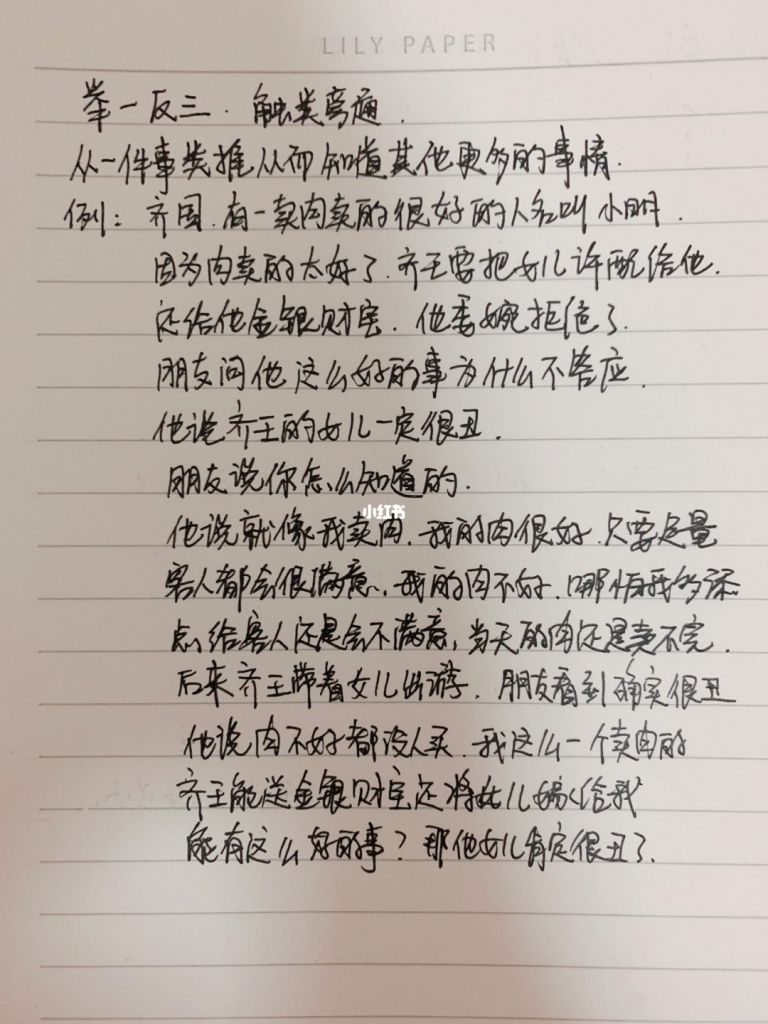 LILY PAPER
举一反三.触类旁通.
从一件事类推从而知道其他更多的事情.
例：齐国.有一卖肉卖的很好的人名叫小明.
因为肉卖的太好了.齐王要把女儿许配给他.
还给他金银财宝.他委婉拒绝了.
朋友问他这么好的事为什么不答应.
他说齐王的女儿一定很丑.
朋友说你怎么知道的.
小红书
他说就像我卖肉.我的肉很好.只要足量
客人都会很满意.我的肉不好.哪怕我多添
点给客人还是会不满意,当天的肉还是卖不完.
后来齐王带着女儿出游.朋友看到确实很丑
他说肉不好都没人买.我这么一个卖肉的
齐王能送金银财宝还将女儿嫁给我
能有这么好的事？那他女儿肯定很丑了.